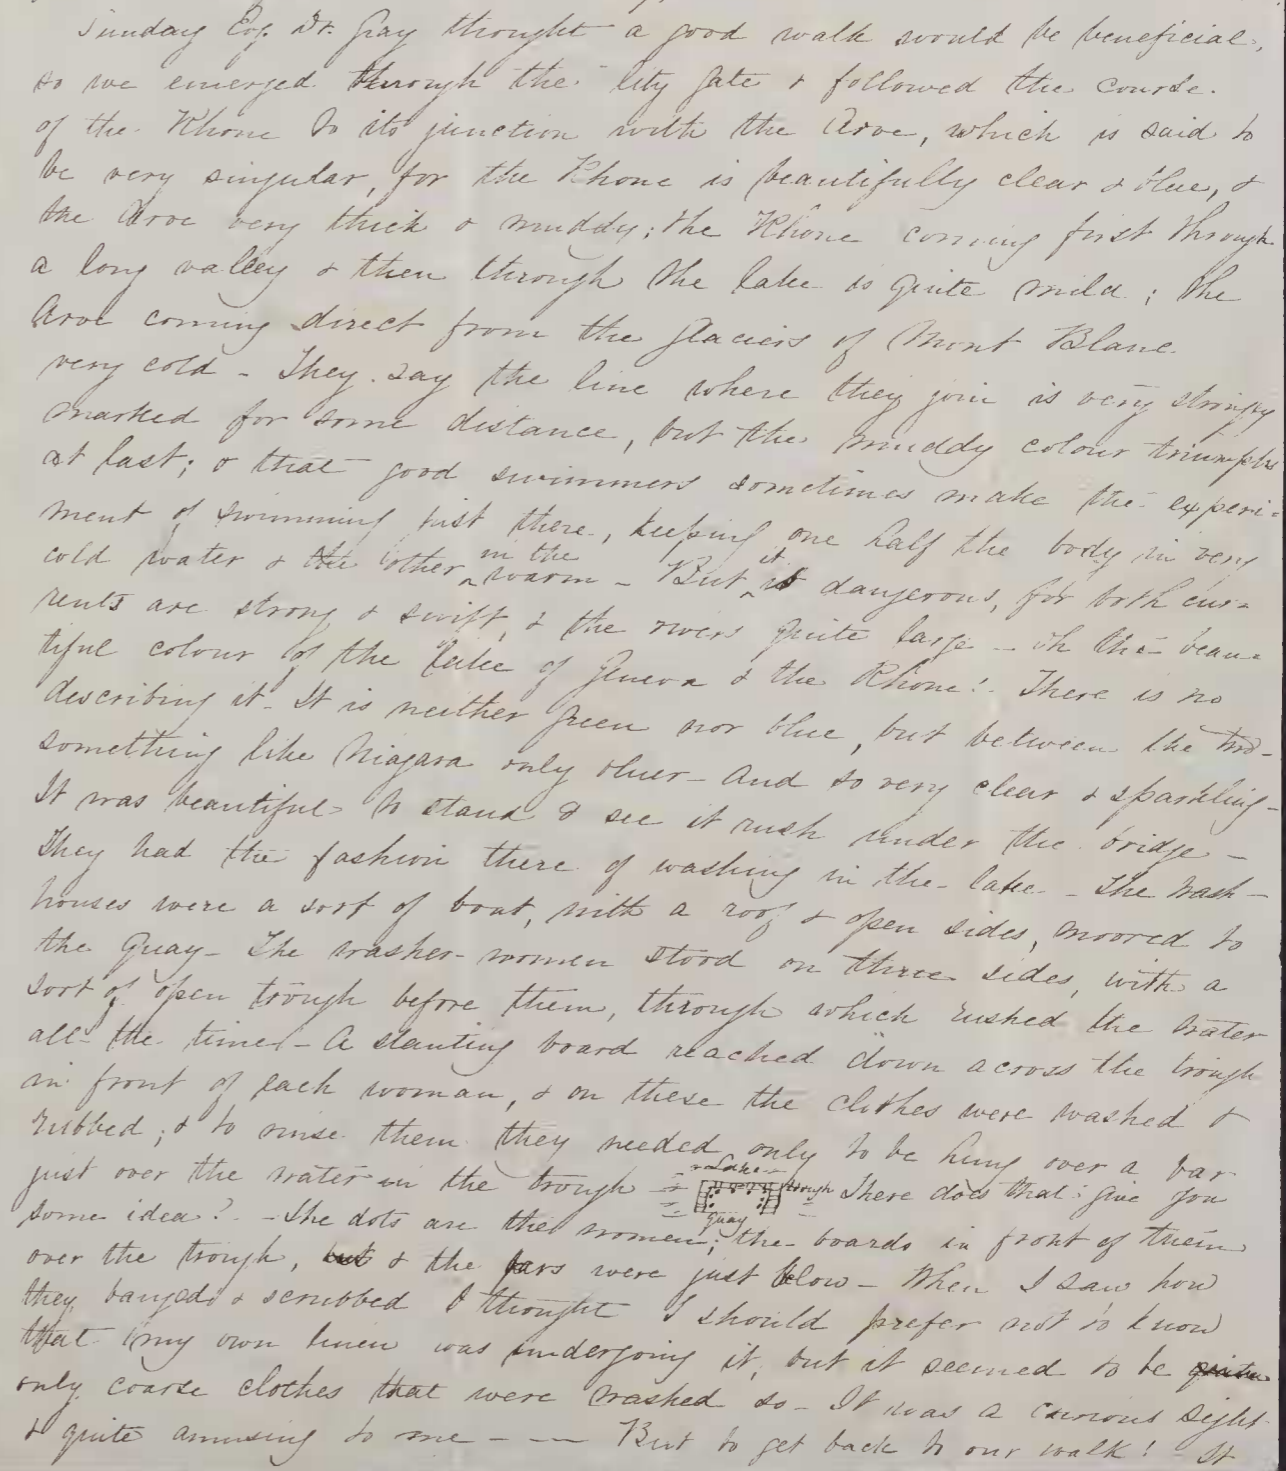 Sunday Evg. Dr. Gray thought a good walk would be beneficial,
so we emerged through the city gate & followed the course
of the Rhone to its junction with the Arve, which is said to
be very singular, for the Rhone is beautifully clear & blue, &
the Arve very thick & muddy; the Rhone coming first through
a long valley & then through the lake is quite mild; the
Arve coming direct from the glaciers of Mont Blanc
very cold - They say the line where they join is very strongly
marked for some distance, but the muddy colour triumphs
at last; & that good swimmers sometimes make the experi-
ment of swimming just there, keeping one half the body in very
cold water & the other in the warm - But it is dangerous, for both cur-
rents are strong & swift, & the rivers quite large - Oh the beau-
tiful colour of the lake of Geneva & the Rhone! There is no
describing it - It is neither green nor blue, but between the two -
something like Niagara only bluer - And so very clear & sparkling -
It was beautiful to stand & see it rush under the bridge -
They had the fashion there of washing in the lake - The wash-
houses were a sort of boat, with a roof & open sides, moored to
the Quay - The washer-women stood on three sides, with a
sort of open trough before them, through which rushed the water
all the time - A slanting board reached down across the trough
in front of each woman, & on these the clothes were washed &
rubbed; & to rinse them they needed only to be hung over a bar
just over the water in the trough Lake trough Quay There does that give you
some idea? - The dots are the women; the boards in front of them
over the trough, but & the bars were just below - When I saw how
they banged & scrubbed I thought I should prefer not to know
that my own linen was undergoing it, but it seemed to be quite
only coarse clothes that were washed so - It was a curious sight
& quite amusing to me - - - But to get back to our walk! - It